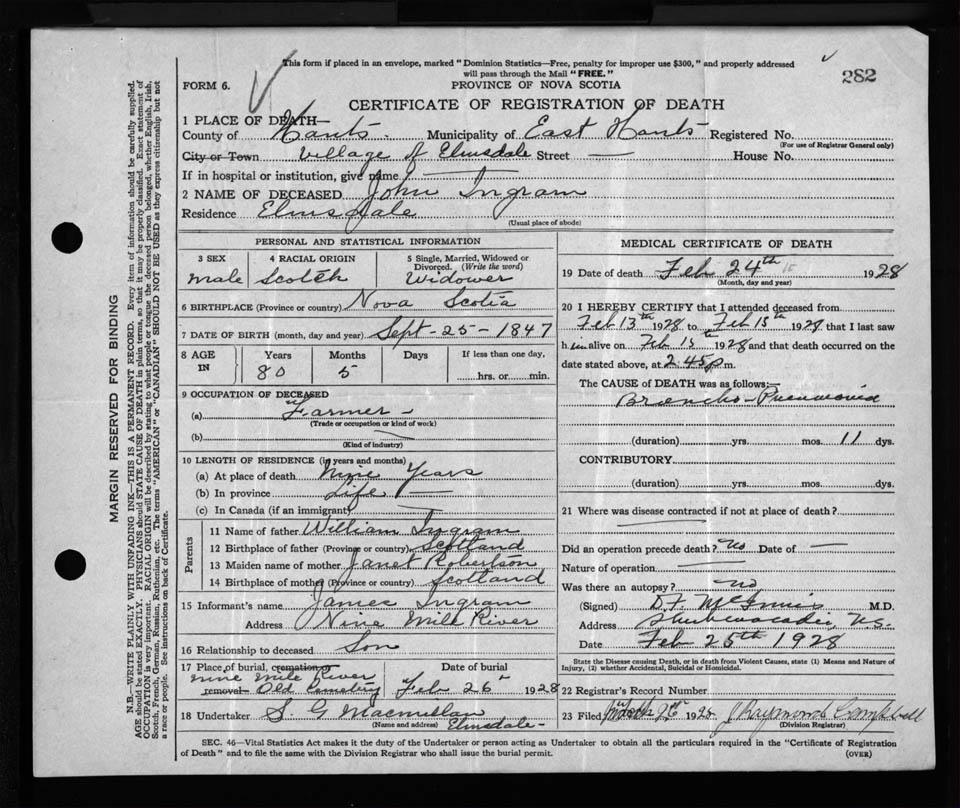 This form if placed in an envelope, marked "Dominion Statistics—Free, penalty for improper use $300," and properly addressed
will pass through the Mail "FREE."
282
FORM 6.
PROVINCE OF NOVA SCOTIA
CERTIFICATE OF REGISTRATION OF DEATH
1 PLACE OF DEATH—
County of Hants. Municipality of East Hants Registered No.
(For use of Registrar General only)
City or Town Village of Elmsdale Street — House No.
If in hospital or institution, give name —
2 NAME OF DECEASED John Ingram
Residence Elmsdale
(Usual place of abode)
PERSONAL AND STATISTICAL INFORMATION
3 SEX
male
4 RACIAL ORIGIN
Scotch
5 Single, Married, Widowed or
Divorced. (Write the word)
Widower
6 BIRTHPLACE (Province or country) Nova Scotia
7 DATE OF BIRTH (month, day and year) Sept-25-1847
8 AGE
IN
Years
80
Months
5
Days
If less than one day,
hrs. or min.
9 OCCUPATION OF DECEASED
(a) Farmer -
(Trade or occupation or kind of work)
(b) —
(Kind of industry)
10 LENGTH OF RESIDENCE (in years and months)
(a) At place of death nine Years
(b) In province Life —
(c) In Canada (if an immigrant) —
Parents
11 Name of father William Ingram
12 Birthplace of father (Province or country) Scotland
13 Maiden name of mother Janet Robertson
14 Birthplace of mother (Province or country) Scotland
15 Informant's name James Ingram
Address Nine Mile River
16 Relationship to deceased Son
17 Place of burial, cremation or
nine mile River
removal Old Cemetery
Date of burial
Feb 26th 1928
18 Undertaker S G Macmillan
(Name and address) Elmsdale-
MEDICAL CERTIFICATE OF DEATH
19 Date of death Feb 24th 1928
(Month, day and year)
20 I HEREBY CERTIFY that I attended deceased from
Feb 13th 1928 to Feb 15th 1928 that I last saw
him alive on Feb 15th 1928 and that death occurred on the
date stated above, at 2.45 p m.
The CAUSE OF DEATH was as follows:—
Broncho-Pneumonia
(duration) yrs. mos. 11 dys.
CONTRIBUTORY
(duration) yrs. mos. dys.
21 Where was disease contracted if not at place of death?
Did an operation precede death? No Date of —
Nature of operation —
Was there an autopsy? no
(Signed) D.F. McInnis M.D.
Address Shubenacadie N.S.
Date Feb 25th 1928
State the Disease causing Death, or in death from Violent Causes, state (1) Means and Nature of
Injury, (2) whether Accidental, Suicidal or Homicidal.
22 Registrar's Record Number
23 Filed 1928 J Raymond Campbell
(Division Registrar)
SEC. 46—Vital Statistics Act makes it the duty of the Undertaker or person acting as Undertaker to obtain all the particulars required in the "Certificate of Registration
of Death" and to file the same with the Division Registrar who shall issue the burial permit.
(OVER)
MARGIN RESERVED FOR BINDING
N.B.—WRITE PLAINLY WITH UNFADING INK—THIS IS A PERMANENT RECORD. Every item of information should be carefully supplied.
AGE should be stated EXACTLY. PHYSICIANS should STATE CAUSE OF DEATH in plain terms, so that it may be properly classified. Exact statement of
OCCUPATION is very important. RACIAL ORIGIN will be described by stating to what people or tongue the deceased person belonged, whether English, Irish,
Scotch, French, German, Russian, Ruthenian, etc. The terms "AMERICAN" or "CANADIAN" SHOULD NOT BE USED as they express citizenship but not
a race or people. See instructions on back of Certificate.